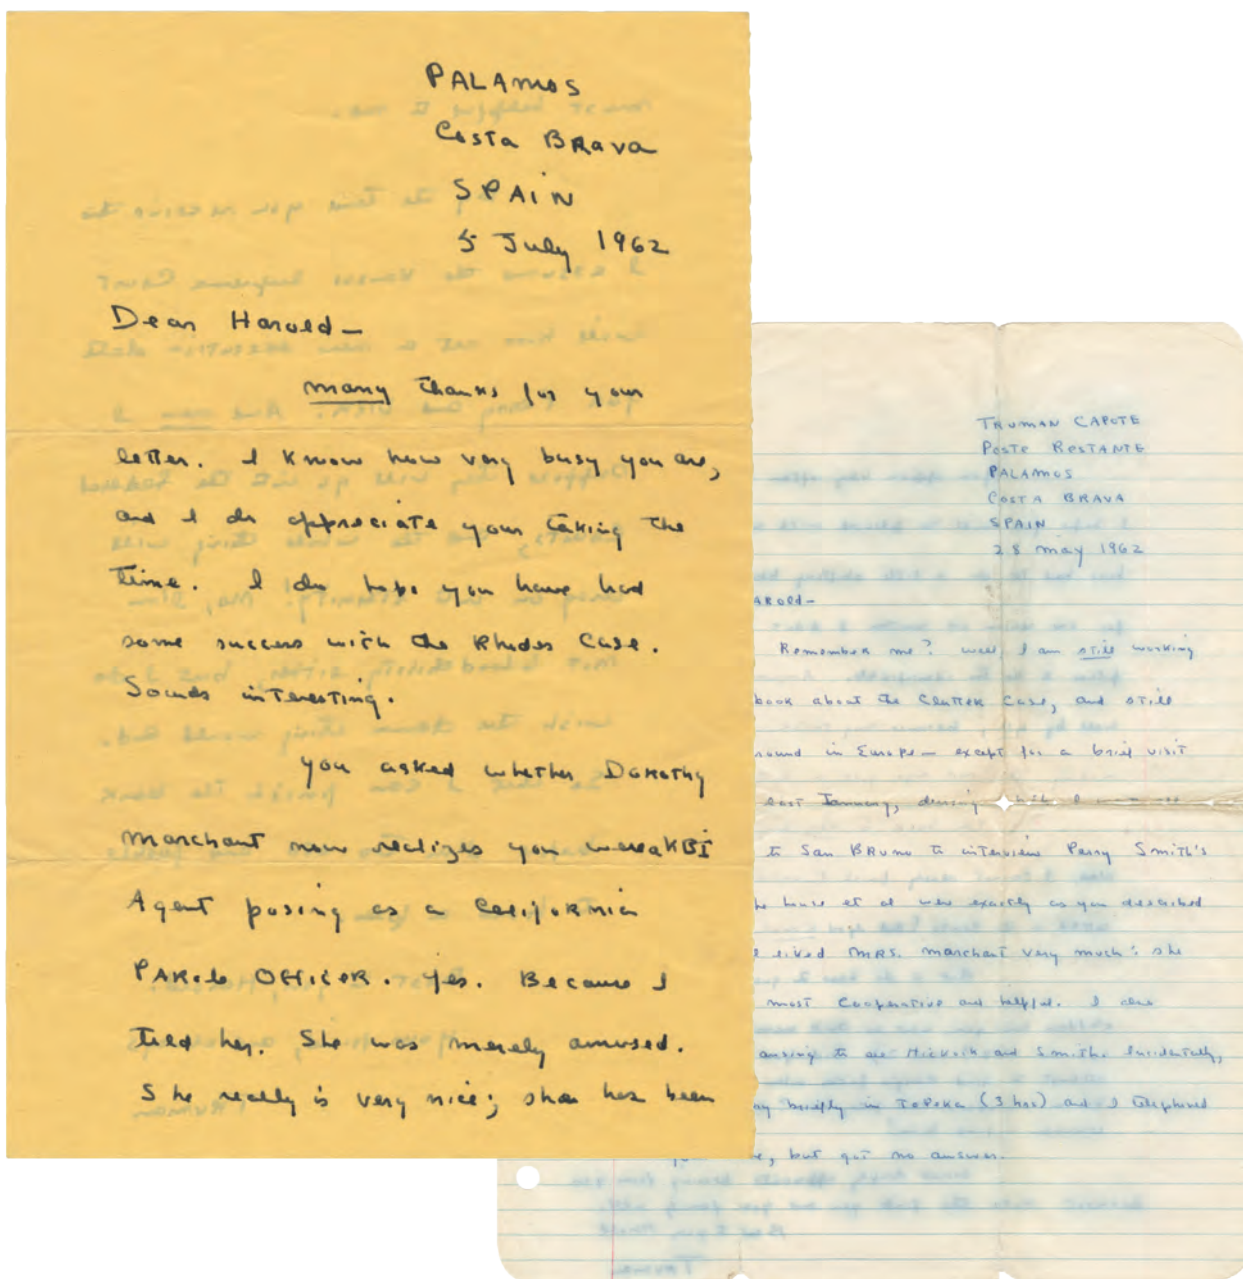 PALAMOS
Costa BRava
SPAIN
5 July 1962
Dear Harold—
many thanks for your
letter. I know how very busy you are,
and I do appreciate your taking the
time. I do hope you have had
some success with the Rhodes Case.
Sounds interesting.
you asked whether Dorothy
Marchant now realizes you were a KBI
Agent posing as a California
PARole OFFicER. yes. Because I
told her. She was merely amused.
She really is very nice; she has been
TRUMAN CAPOTE
Poste RESTANTE
PALAMOS
COSTA BRAVA
SPAIN
28 may 1962
AROLD—
Remember me? well, I am still working
book about the Clutter Case, and still
round in Europe— except for a brief visit
last January, during which I
to San BRuno to interview Perry Smith's
he house et al were exactly as you described
I liked MRS. marchant very much: she
most cooperative and helpful. I also
ansing to see Hickock and Smith. Incidentally,
briefly in ToPeka (3 hrs) and I telephoned
, but got no answer.